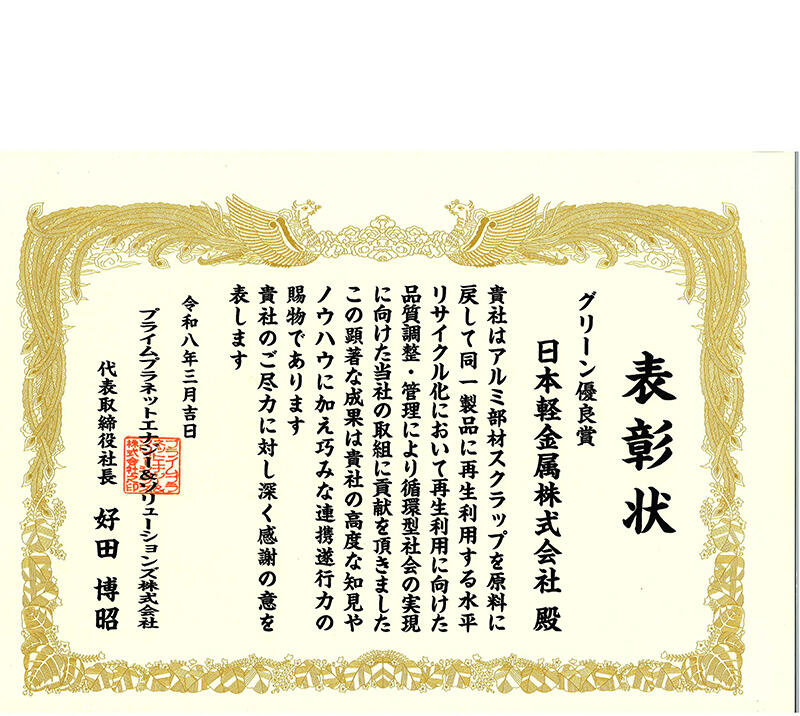 表彰状
グリーン優良賞
日本軽金属株式会社 殿
貴社はアルミ部材スクラップを原料に
戻して同一製品に再生利用する水平
リサイクル化において再生利用に向けた
品質調整・管理により循環型社会の実現
に向けた当社の取組に貢献を頂きました
この顕著な成果は貴社の高度な知見や
ノウハウに加え巧みな連携遂行力の
賜物であります
貴社のご尽力に対し深く感謝の意を
表します
令和八年三月吉日
プライムプラネットエナジー&ソリューションズ株式会社
代表取締役社長 好田 博昭